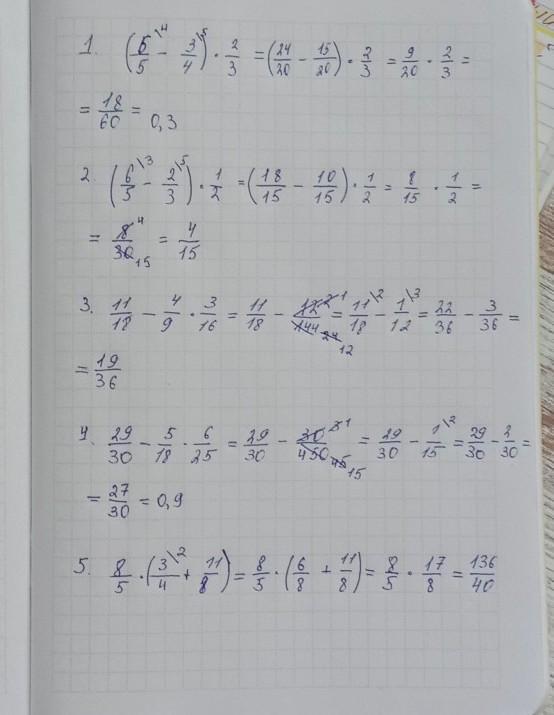 1. (6/5\4 - 3/4\5) · 2/3 = (24/20 - 15/20) · 2/3 = 9/20 · 2/3 =
= 18/60 = 0,3
2. (6/5\3 - 2/3\5) · 1/2 = (18/15 - 10/15) · 1/2 = 8/15 · 1/2 =
= 8/30 4/15 = 4/15
3. 11/18 - 4/9 · 3/16 = 11/18 - 12/144 2/24 1/12 = 11/18\2 - 1/12\3 = 22/36 - 3/36 =
= 19/36
4. 29/30 - 5/18 · 6/25 = 29/30 - 30/450 3/45 1/15 = 29/30 - 1/15\2 = 29/30 - 2/30 =
= 27/30 = 0,9
5. 8/5 · (3/4\2 + 11/8) = 8/5 · (6/8 + 11/8) = 8/5 · 17/8 = 136/40